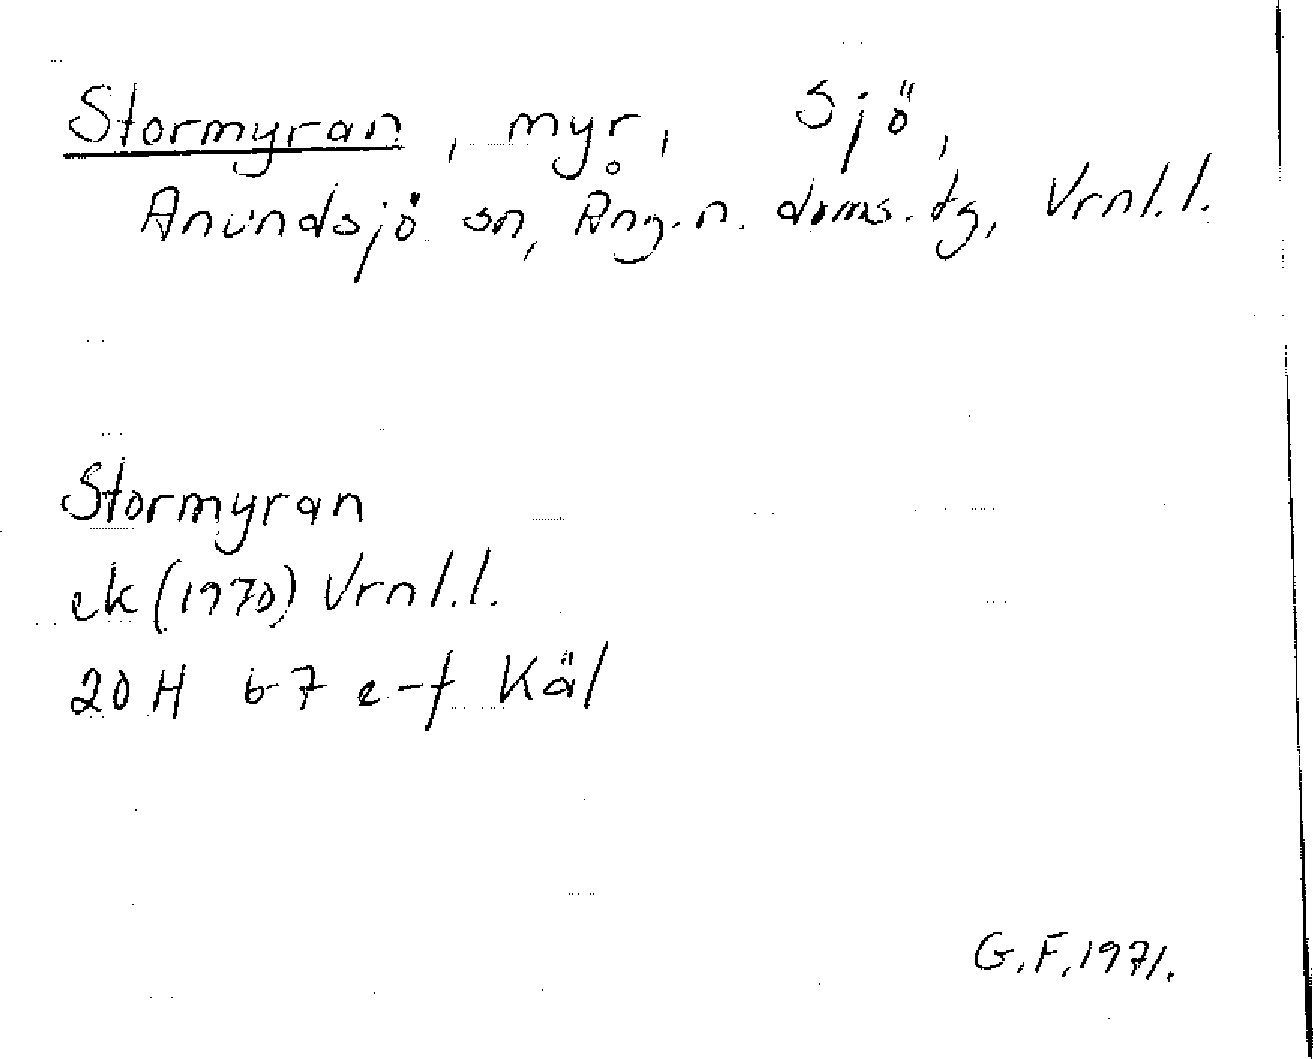 Stormyran, myr, Sjö,
Anundsjö sn, Ång.n. doms.tg, Vrnl.l.
Stormyran
ek (1970) Vrnl.l.
20 H 6-7 e-f Käl
G.F. 1971.